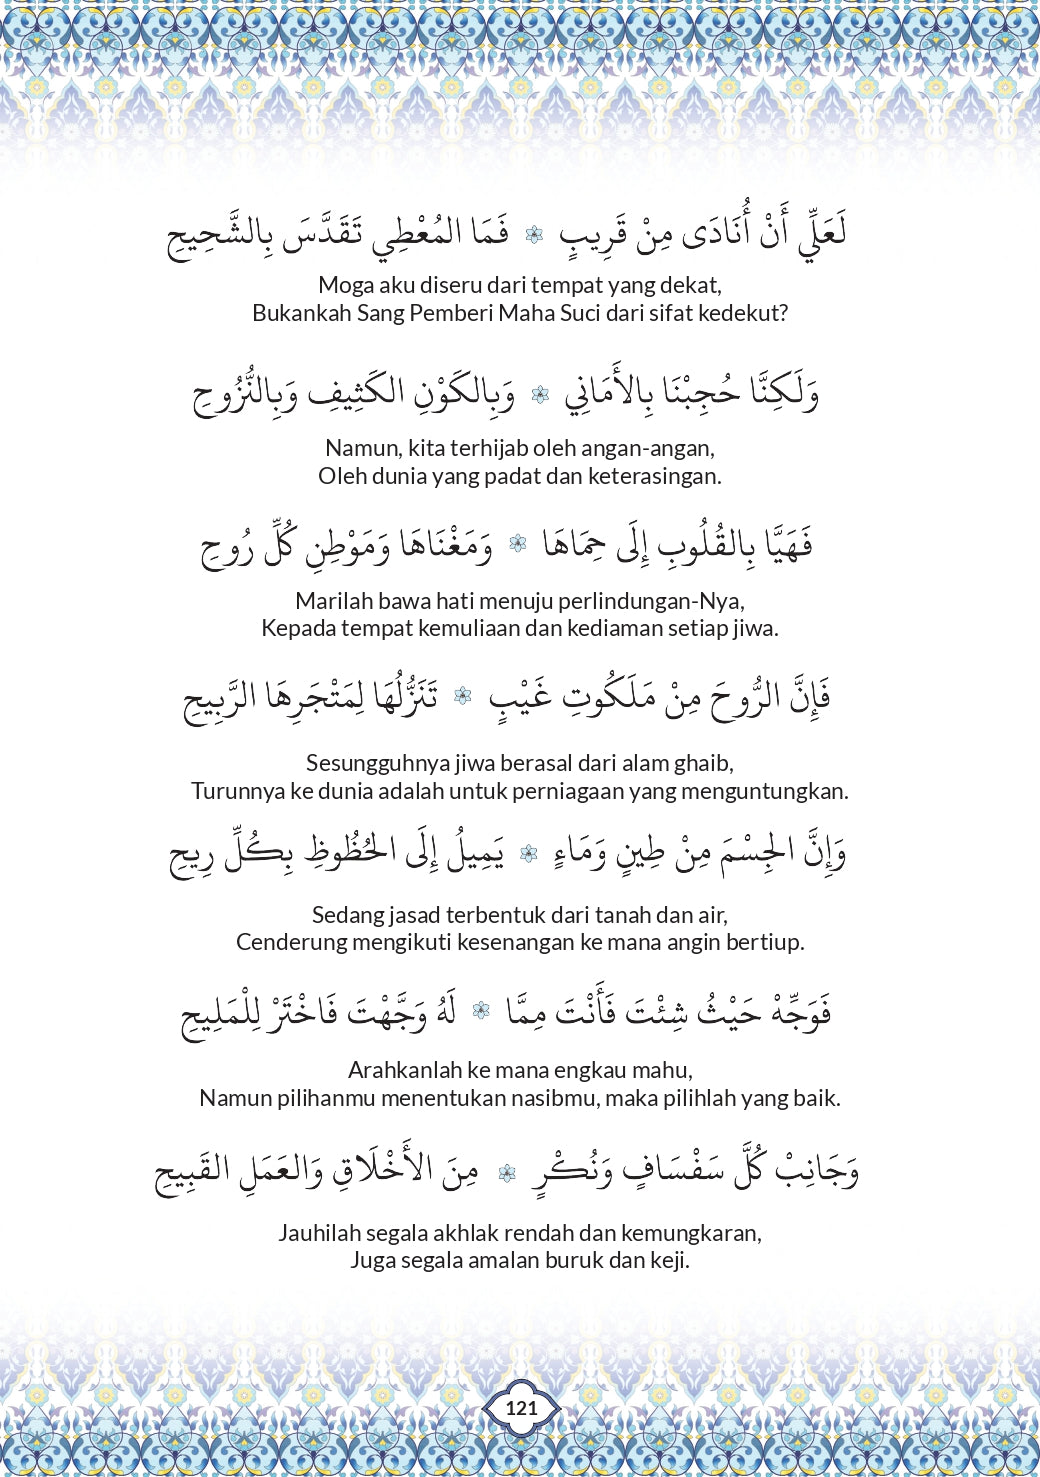 لَعَلِّي أَنْ أُنَادَى مِنْ قَرِيبٍ فَمَا المُعْطِي تَقَدَّسَ بِالشَّحِيحِ
Moga aku diseru dari tempat yang dekat,
Bukankah Sang Pemberi Maha Suci dari sifat kedekut?
وَلَكِنَّا حُجِبْنَا بِالأَمَانِي وَبِالكَوْنِ الكَثِيفِ وَبِالنُّزُوحِ
Namun, kita terhijab oleh angan-angan,
Oleh dunia yang padat dan keterasingan.
فَهَيَّا بِالقُلُوبِ إِلَى حِمَاهَا وَمَغْنَاهَا وَمَوْطِنِ كُلِّ رُوحِ
Marilah bawa hati menuju perlindungan-Nya,
Kepada tempat kemuliaan dan kediaman setiap jiwa.
فَإِنَّ الرُّوحَ مِنْ مَلَكُوتِ غَيْبٍ تَنَزُّلُهَا لِمَتْجَرِهَا الرَّبِيحِ
Sesungguhnya jiwa berasal dari alam ghaib,
Turunnya ke dunia adalah untuk perniagaan yang menguntungkan.
وَإِنَّ الجِسْمَ مِنْ طِينٍ وَمَاءٍ يَمِيلُ إِلَى الحُظُوظِ بِكُلِّ رِيحِ
Sedang jasad terbentuk dari tanah dan air,
Cenderung mengikuti kesenangan ke mana angin bertiup.
فَوَجِّهْ حَيْثُ شِئْتَ فَأَنْتَ مِمَّا لَهُ وَجَّهْتَ فَاخْتَرْ لِلْمَلِيحِ
Arahkanlah ke mana engkau mahu,
Namun pilihanmu menentukan nasibmu, maka pilihlah yang baik.
وَجَانِبْ كُلَّ سَفْسَافٍ وَنُكْرٍ مِنَ الأَخْلَاقِ وَالعَمَلِ القَبِيحِ
Jauhilah segala akhlak rendah dan kemungkaran,
Juga segala amalan buruk dan keji.
121